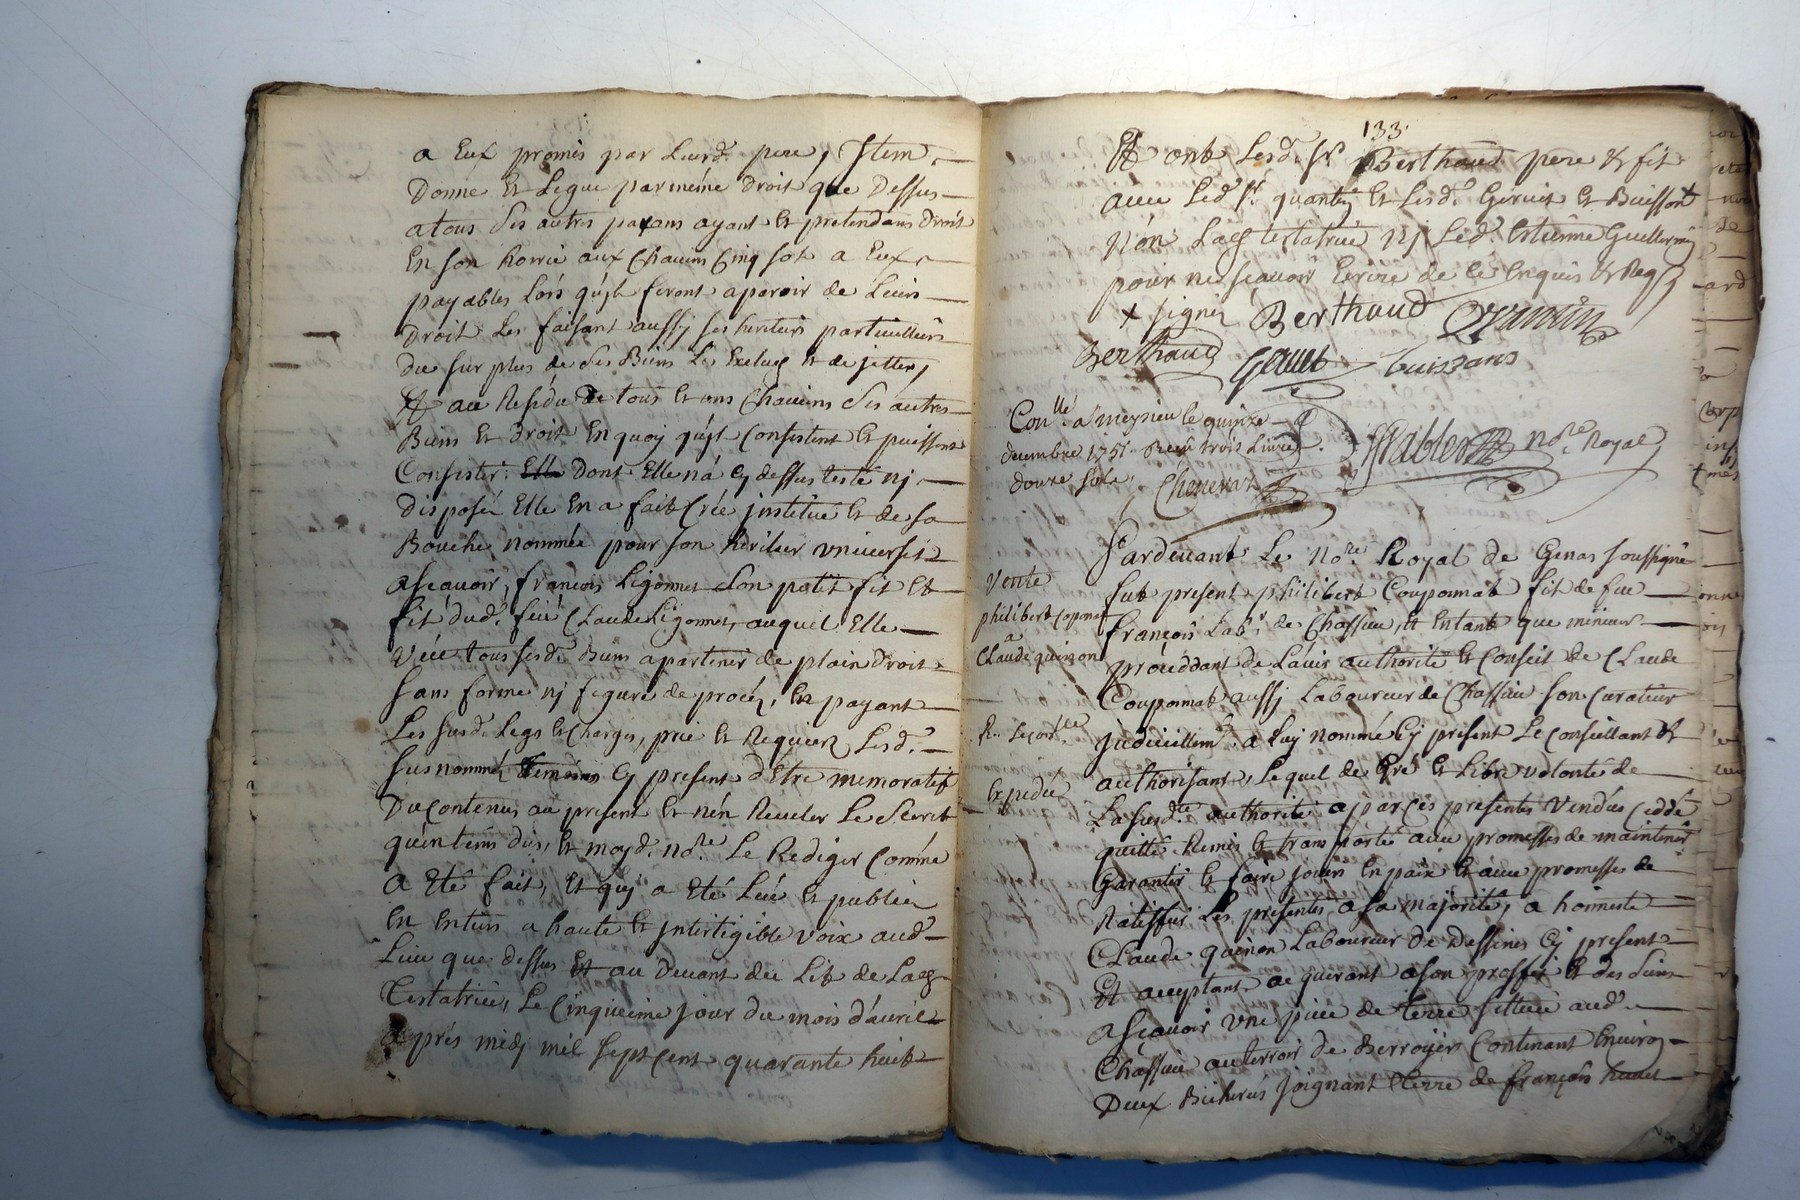 a Eux promis par Leurd. pere, Item
Donne Et Legue par même Droit que Dessus
a tous ses autres parans ayant Et pretendans Droit
En son hoirie aux Chacuns Cinq sols a Eux
payables Lors qu'jls feront aparoir de Leurs
Droit Les faisant aussj ses heritiers particulliers
du surplus de ses Biens Les Exclud Et dejettent,
Et au Residu De tous Et uns Chacuns ses autres
Biens Et Droit En quoy qu'jls Consistent Et puissent
Consister: Elle Dont Elle n'a Cy dessus testé nj
disposé, Elle En a fait Créé jnstitué Et de sa
Bouche nommée pour son heritier vniversel
ascavoir, françois Ligonnet son petit fils Et
fils dud. feu Claude Ligonnet, auquel Elle
veut tous sesd. Biens apartenir de plain droit
sans forme nj figure de procés, En payant
Les susd. Legs Et Charges, prie Et Requiert Lesd.
susnommés temoins Cy present d'Etre memoratifs
Du Contenus au present Et n'en Reveler Le Secret
qu'en tems dus, Et moyd. no.re Le Rediger Comme
a Eté fait, Et qui a Eté Lue Et publiée
En Entier a haute Et jntertigible voix aud.
Lieu que dessus Et au Devant du Lit de Lad.
Testatrice, Le Cinquieme jour du mois d'avril
aprés midj mil sept cent quarante huit
133
Et ont Lesd. Sr. Berthaud pere & fils
avec Led. Sr. quantin Et Lesd. Gervet Et Buisson +
Non Lad. testatrice nj Led. Estienne Guillermin
pour ne scavoir Ecrire de ce Enquis & Req.
+ signés Berthaud Quantin
Berthaud Buissans
Con.llé a Meysieu le quinze
decembre 1751. Receu trois Livres
douze sols. Chenevaz
no.re Royal
Vente
philibert Coponat
a
Claude quinon
Expedié
Pardevant Le No.re Royal de Genas soussigné
fut present philibert Couponnat fils de feu
françois Lab.r de Chassieu, Et Entant que mineur
procéddant de L'avis authorité Et Conseil de Claude
Couponnat aussj Laboureur de Chassieu son Curateur
judiciellem.t a Luy nommé Cy present Le Conseillant &
authorisant, Lequel de Gré Et Libre volonté de
La susd.te authorité a par Ces presentes Vendus Ceddé
quitté Remis Et transporté avec promesses de maintenir
Garantir Et faire jouir En paix Et avec promesses de
Ratiffier Les presentes a sa majorité, a honneste
Claude quinon Laboureur De Dessines Cy present
Et acceptant acquerant a son proffit Et des siens
ascavoir vne piece de terre sittuée aud.
Chassieu au terroir de Berroyer Contenant Environ
Deux Bicherés joignant terre de françois